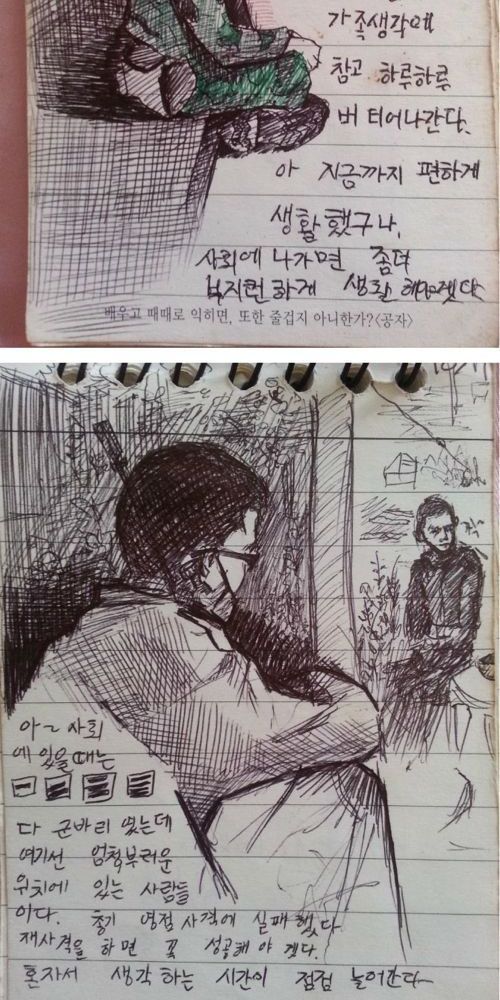 가족생각에
참고 하루하루
버티어나간다.
아 지금까지 편하게
생활했구나.
사회에 나가면 좀더
부지런하게 생활해야겠다
배우고 때때로 익히면, 또한 즐겁지 아니한가?〈공자〉
아~ 사회
에 있을때는
다 군바리 였는데
여기선 엄청부러운
위치에 있는 사람들
이다. 총기 영점사격에 실패했다.
재사격을 하면 꼭 성공해야 겠다.
혼자서 생각하는 시간이 점점 늘어간다